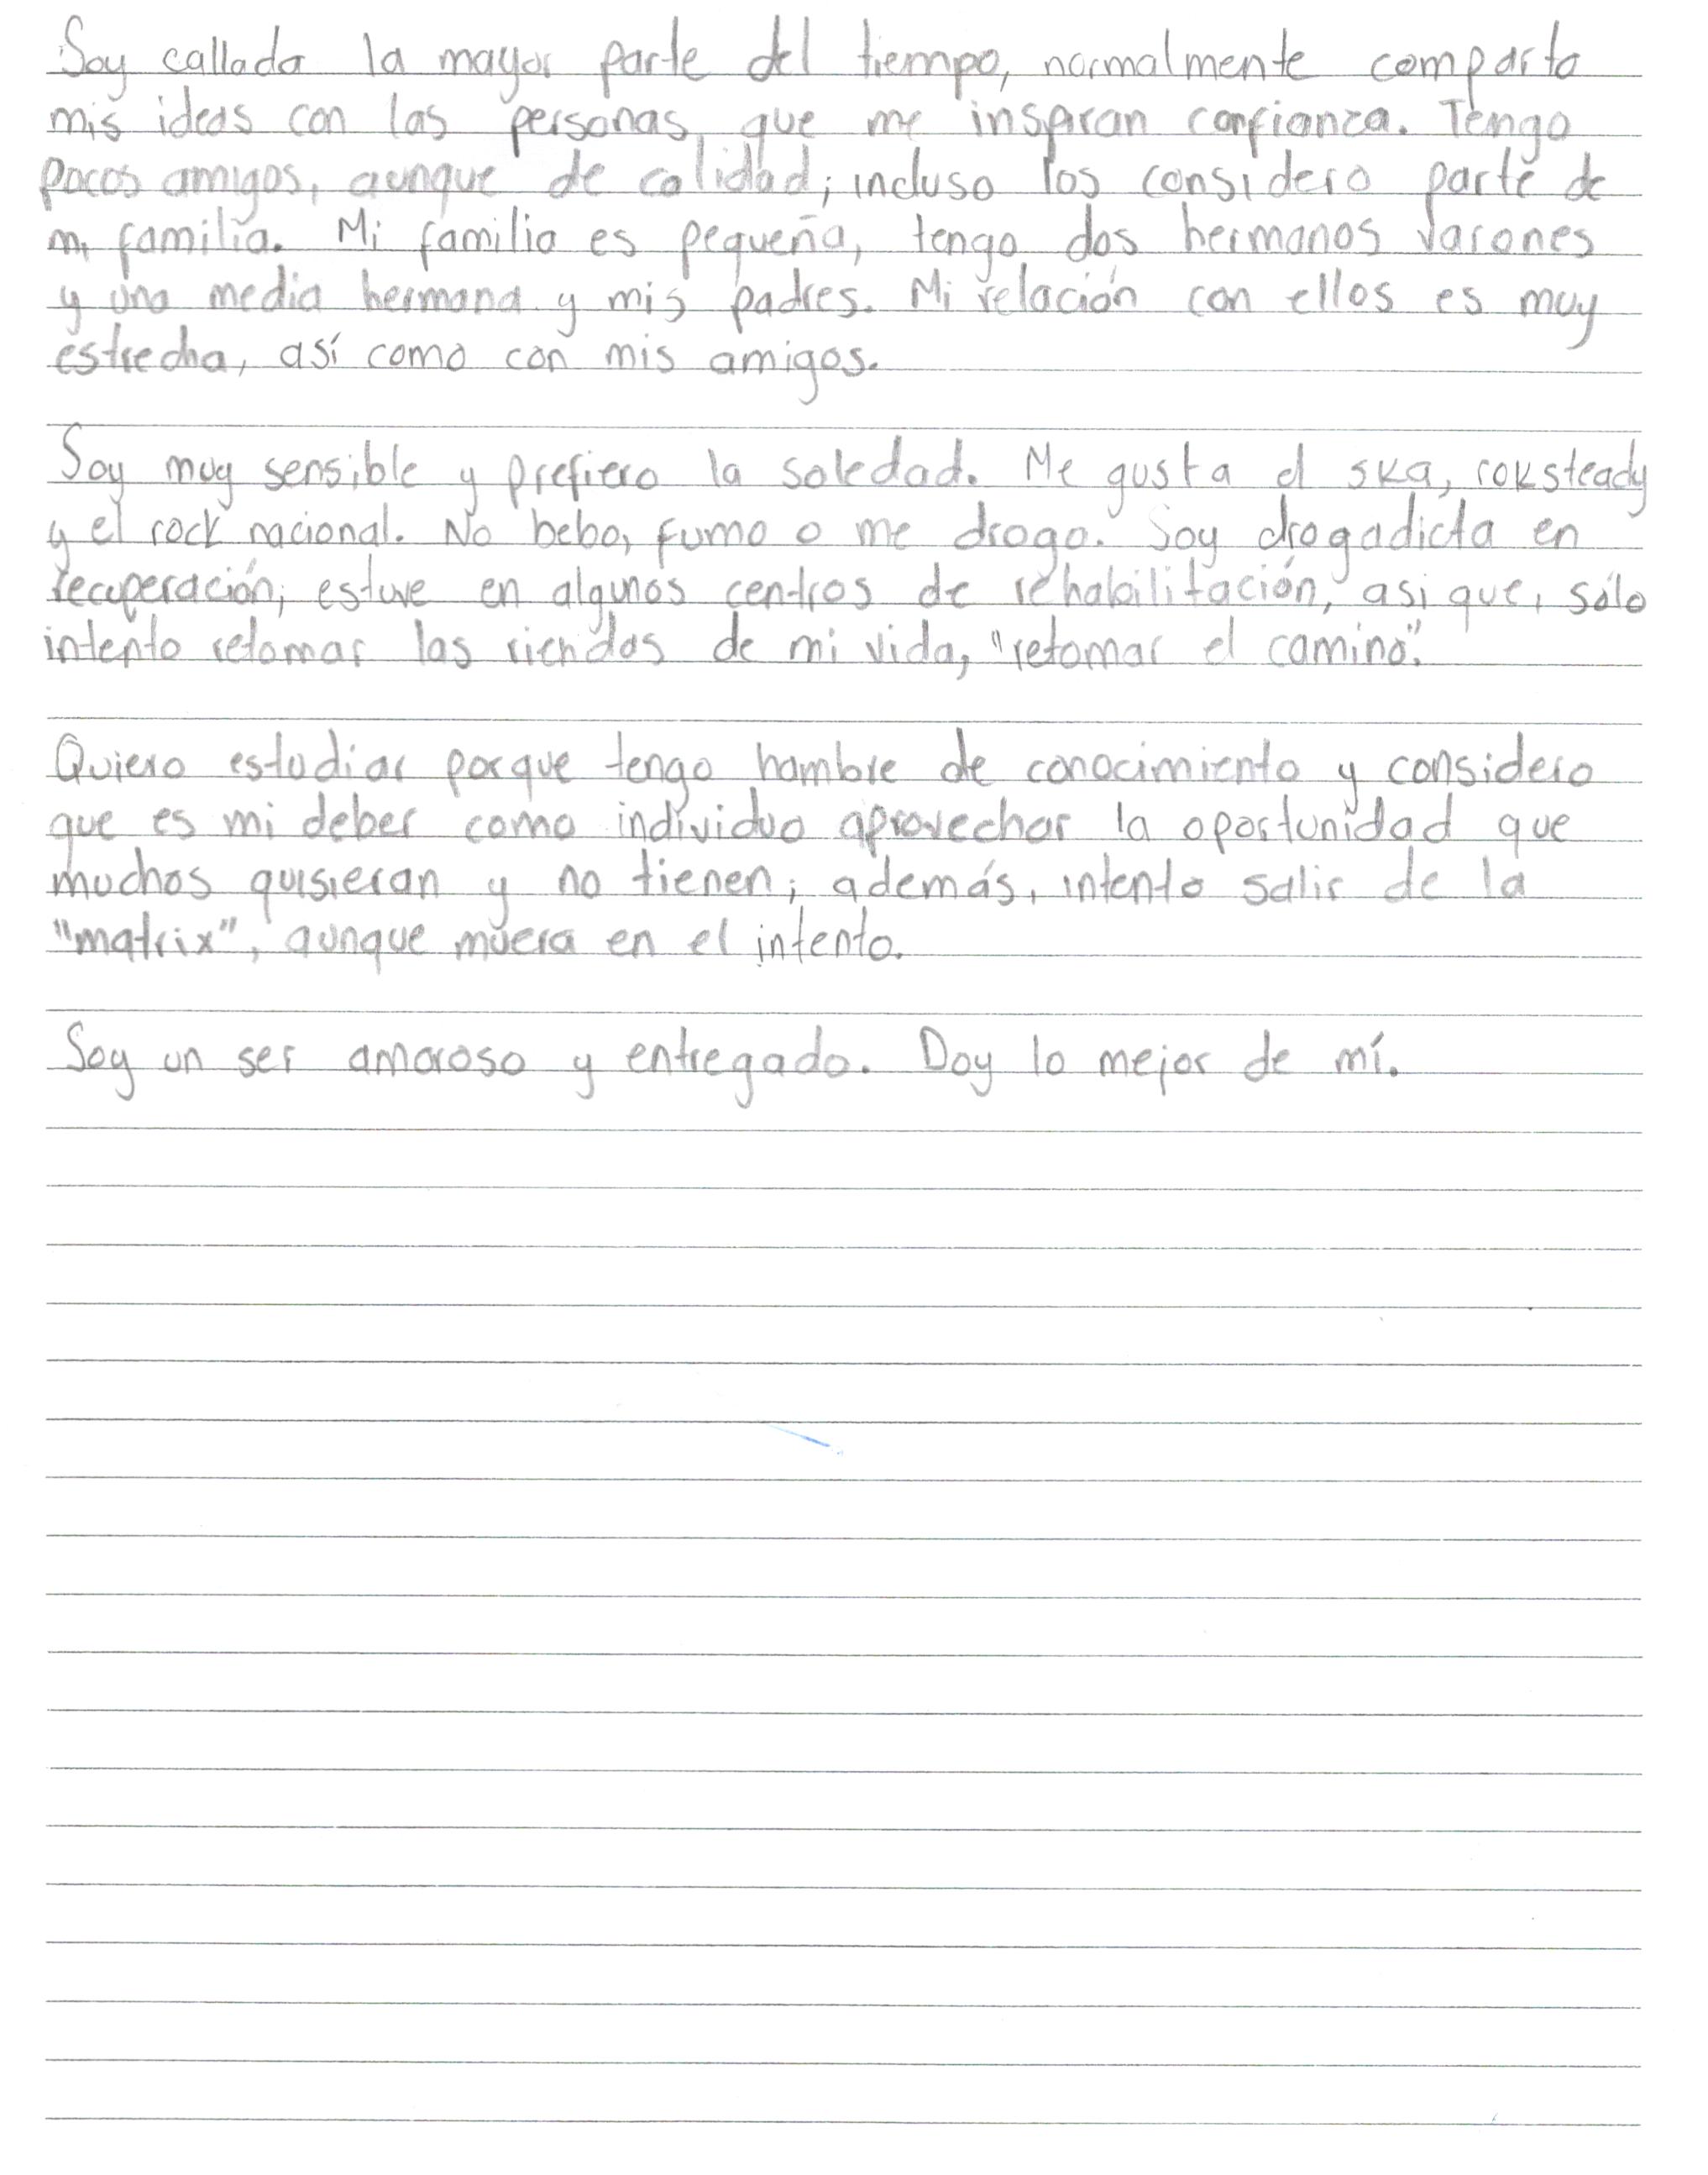 Soy callada la mayor parte del tiempo, normalmente comparto
mis ideas con las personas que me inspiran confianza. Tengo
pocos amigos, aunque de calidad; incluso los considero parte de
mi familia. Mi familia es pequeña, tengo dos hermanos varones
y una media hermana y mis padres. Mi relación con ellos es muy
estrecha, así como con mis amigos.
Soy muy sensible y prefiero la soledad. Me gusta el ska, roksteady
y el rock nacional. No bebo, fumo o me drogo. Soy drogadicta en
recuperación; estuve en algunos centros de rehabilitación, asi que, sólo
intento retomar las riendas de mi vida, "retomar el camino".
Quiero estudiar porque tengo hambre de conocimiento y considero
que es mi deber como individuo aprovechar la oportunidad que
muchos quisieran y no tienen; además, intento salir de la
"matrix", aunque muera en el intento.
Soy un ser amoroso y entregado. Doy lo mejor de mí.